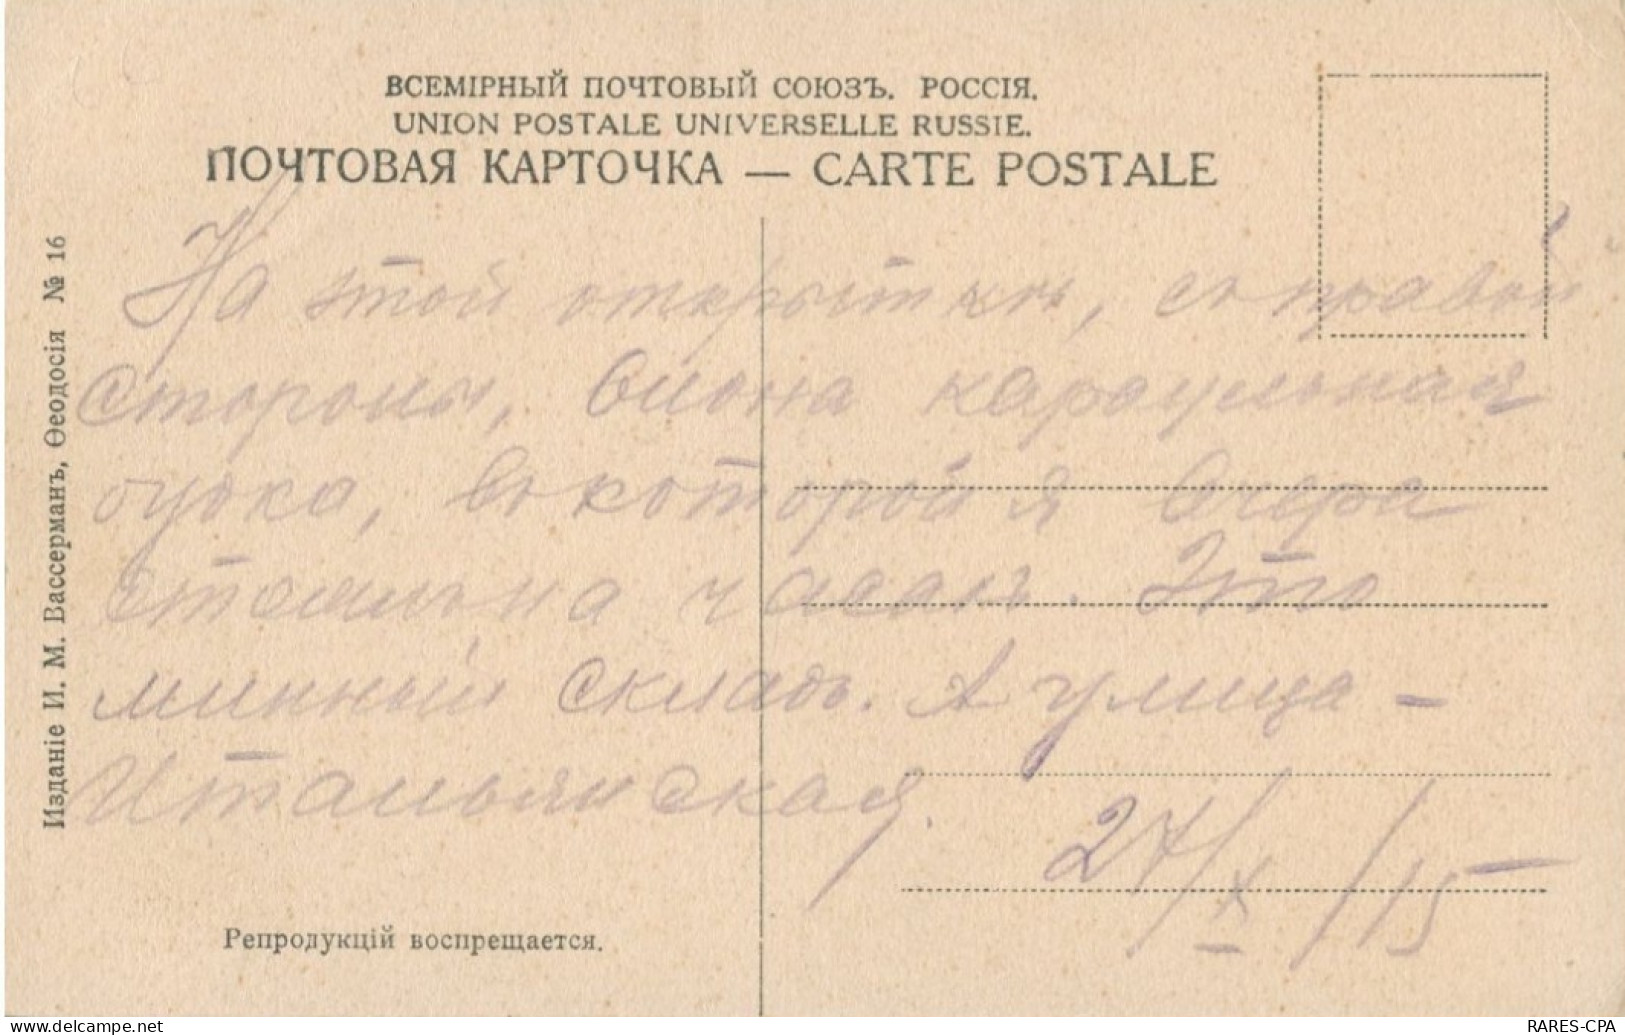 ВСЕМІРНЫЙ ПОЧТОВЫЙ СОЮЗЪ. РОССІЯ.
UNION POSTALE UNIVERSELLE RUSSIE.
ПОЧТОВАЯ КАРТОЧКА — CARTE POSTALE
На этой открыткѣ, съ правой
стороны, видна караульная
будка, въ которой я вчера
стоялъ на часахъ. Это
минный складъ. А улица –
Итальянская.
27/X/15
Изданіе И. М. Вассерманъ, Ѳеодосія № 16
Репродукцій воспрещается.
www.delcampe.net
RARES-CPA